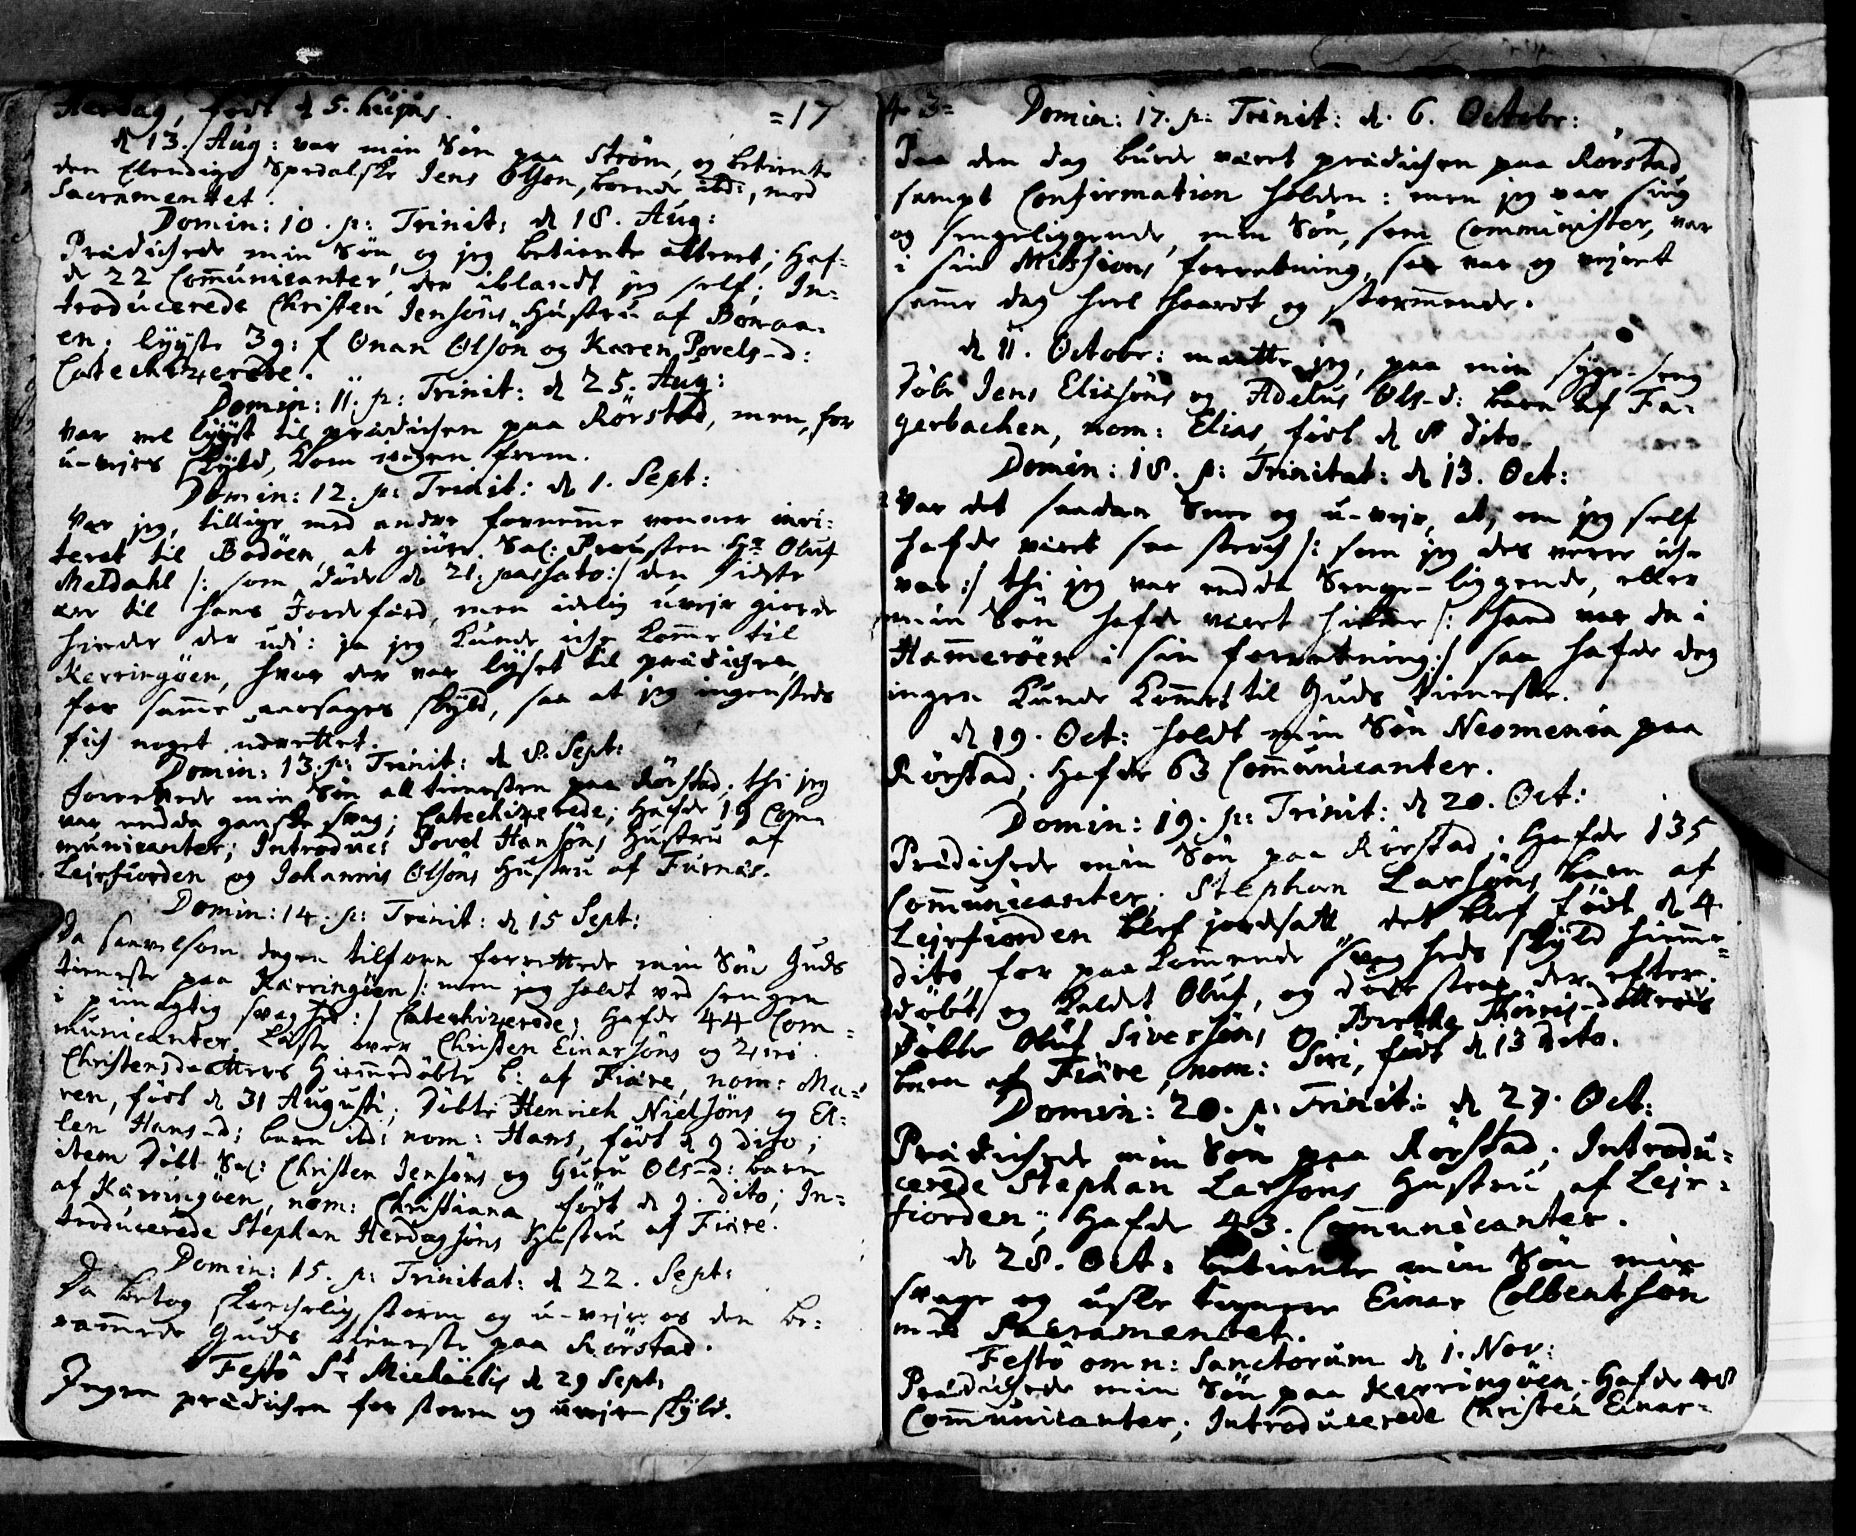 Herdag, født d 5. hujus. =17
d 13. Aug: var min Søn paa Strøm, og betiente
den Elendige Spedalske Jens Olsøn, boende ibd:, med
Sacramentet.
Domin: 10. p: Trinit: d 18. Aug:
Prædichede min Søn, og jeg betiente alteret; Haf-
de 22 Communicanter, der iblandt jeg self; In-
troducerede Christen Jensøns Hustru af
en; lyyste 3 g: f Onan Olsøn og Karen Povels-d:
Catechizerede.
Domin: 11. p: Trinit: d 25. Aug:
Var vel lyyst til prædichen paa Rørstad, men, for
u-vejrs skyld, kom ingen frem.
Domin: 12. p: Trinit: d 1. Sept:
Var jeg, tillige med andre fornemme venner invi-
teret til Bodøen, at giøre Sal: Provsten Hr Oluf
Meldahl /: som døde d 21. passato :/ den sidste
ære til hans Jordefærd, men idelig uvejr giorde
hinder der udi: ja jeg kunde iche komme til
Kerringøen, hvor der var lyset til prædichen,
for samme aarsages skyld, saa at jeg ingensteds
fich noget udrettet.
Domin: 13. p: Trinit: d 8. Sept:
Forrettede min Søn all tienesten paa Rørstad, thi jeg
var endda ganske svag; Catechizerede; Hafde 19 Com
municanter; Introduc: Povel Hansøns Hustru af
Lejrfiorden og Johannis Olsøns Hustru af Furnæs.
Domin: 14. p: Trinit: d 15 Sept:
Da saavelsom dagen tilforn forrettede min Søn Guds
tieneste paa Kærringøen /: men jeg holdt ved sengen
i svaghed :/ Catechizerede; Hafde 44 Com-
municanter, Læste over Christen Einarsøns og
Christensdatters Hiemmedøbte b: af Fiære, nom: Ma-
ren, født d 31 Augusti; Døbte Henrich Nielsøns og El-
len Hans-d: barn ibd: nom: Hans, født d 9 dito;
item døbt Sal: Christen Jensøns og Guru Ols-d: barn
af Kærringøen, nom: Christiana født d 9. dito; In-
troducerede Stephan Herdagsøns Hustru af Fiære.
Domin: 15. p: Trinitat: d 22. Sept:
Da betog skrechelig storm og u-vejr os den be-
rammede Guds tieneste paa Rørstad.
Festo St Michaëlis d 29 Sept:
Ingen prædichen for storm og uvejrs skyld.
43= Domin: 17. p: Trinit: d. 6. Octobr:
Paa den dag burde været prædichen paa Rørstad
sampt Confirmation holden: men jeg var siug
og sengeliggende, min Søn, som Comminister, var
i sin Missions forretning, saa var og vejret
samme dag heel haardt og stormende.
d 11. Octobr: maatte jeg, paa min syge-seng
døbe Jens Eliasøns og Adelus Ols-d: barn af Fa-
gerbachen, nom: Elias, født d 8 dito.
Domin: 18. p: Trinitat: d 13. Oct:
Var det saadan Snee og u-vejr, at, om jeg self
hafde været saa sterch /: som jeg des verre iche
var :/ thi jeg var endda Senge-liggende, eller
min Søn hafde vært hiemme /: hand var da i
Hammerøen i sin forretning :/ saa hafde dog
ingen kunde kommet til Guds tieneste.
d 19. Oct: holdt min Søn Neomenia paa
Rørstad; Hafde 63 Communicanter.
Domin: 19. p: Trinit: d 20. Oct:
Prædichede min Søn paa Rørstad; Hafde 135
Communicanter; Stephan Larsøns barn af
Lejrfiorden blef jordsatt, det blef født d 4
dito, for paakommende svagheds skyld hiemme-
døbt og kaldet Oluf, og døde strax der efter.
Døbte Oluf Siversøns og Berthe datters
barn af Fiære, nom: Siri, født d 13 dito.
Domin: 20. p. Trinit: d 27. Oct:
Prædichede min Søn paa Rørstad; Introdu-
cerede Stephan Larsøns Hustru af Lejr-
fiorden; Hafde 43. Communicanter.
d 28. Oct: betiente min Søn min
svage og usle tienere Einar Colbentsøn
med Sacramentet.
Festo omn: Sanctorum d 1. Nov:
Prædichede min Søn paa Kerringøen; Hafde 48
Communicanter; Introducerede Christen Einar-